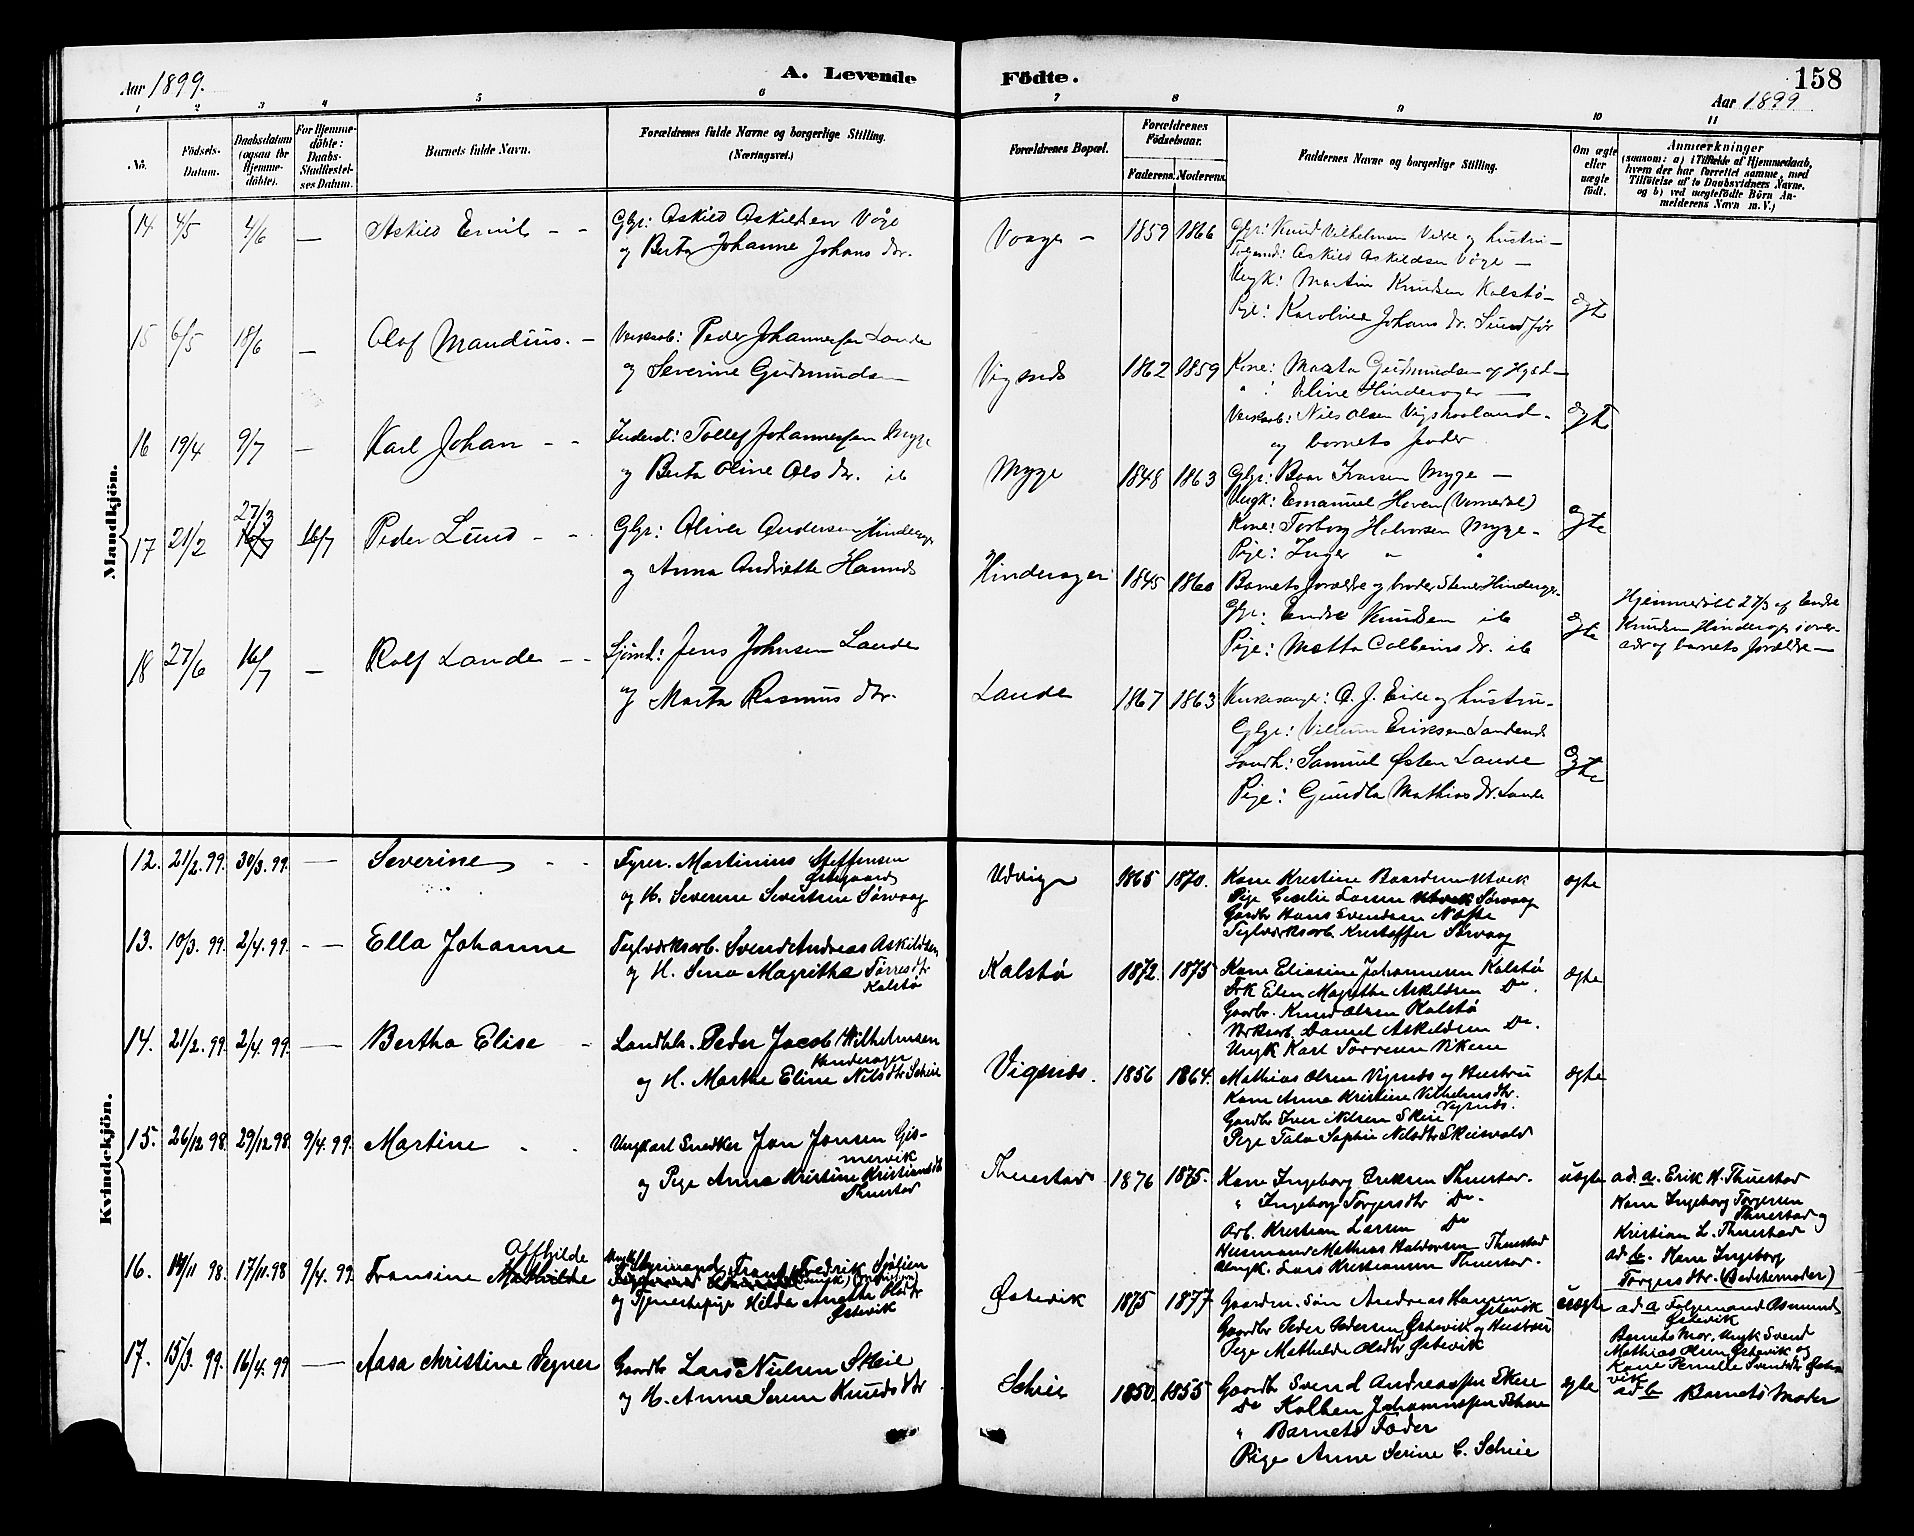 Aar 1899.
A. Levende
Födte.
158
Aar 1899
1 2 3 4 5 6 7 8 9 10 11
No.
Födsels-
Datum.
Daabsdatum
(ogsaa for
Hjemme-
döbte).
For Hjemme-
döbte:
Daabs-
Stadfæstel-
ses Datum.
Barnets fulde Navn.
Forældrenes fulde Navne og borgerlige Stilling.
(Næringsvei.)
Forældrenes Bopæl.
Forældrenes
Födselsaar.
Faderens. Moderens.
Faddernes Navne og borgerlige Stilling.
Om ægte
eller
uægte
födt.
Anmærkninger
(saasom: a) i Tilfælde af Hjemmedaab,
hvem der har forrettet samme, med
Tilföielse af to Daabsvidners Navne,
og b) ved uægtefödte Börn An-
melderens Navn m. V.)
Mandkjön.
14. 4/5 4/6 — Askild Emil - -
Gbr: Askild Askildsen Våge
og Berta Johanne Johans dtr.
Vaage - 1859 1866
Gbr: Knud Vilhelmsen Vikre og hustru -
Askild Askildsen Våge -
Ungk: Martin Knudsen Kalstø -
Pige: Karoline Johans dr. Sundfør
ægte
15 6/5 18/6 — Olaf Mandius. -
Verksarb: Peder Johannessen Lande
og Severine Gudmunds -
Vigsnes 1862 1859
Kone: Marta Gudmundsen
" : Eline Hinderager -
Verksarb: Nils Olsen -
og barnets fader
ægte
16 19/4 9/7 — Karl Johan - -
Inderst: Tollef Johannessen Myge
og Berta Oline Ols dr. ib
Myge 1848 1863
Gbr: Baar Ivarsen Myge -
Ungk: Emanuel Hoven
Kone: Torborg Halvorsen Myge -
Pige: Inger " "
ægte
17 21/2 27/3 16/7 16/7 Peder Lund - -
Gbr: Oliver Andersen Hinderager
og Anna Andriette Hannes
Hinderager 1845 1860
Barnets forældre og broder Stener Hinderager.
Gbr: Endre Knudsen ib
Pige: Matta Colbeins dr. ib
ægte
Hjemmedöbt 27/3 af Endre
Knudsen Hinderager i over-
vær af barnets forældre -
18 27/6 16/7 — Rolf Lande - -
Sjømd: Jens Johnsen Lande
og Marta Rasmus dtr.
Lande 1867 1863
Kirkesanger: O. J. Eide og hustru -
Gbr: Villum Eriksen Landenes
Landh: Samuel Østen Lande
Pige: Gundla Mathias dr. Lande
ægte
Kvindekjön.
12. 21/2. 99. 30/3. 99. — Severine - -
Fyrer. Martinius Steffensen
Østgaard
og H. Severine Sevrine Sørvaag
Udvig 1865 1870.
Kone Kristine Baardsen Utvik
Pige Cecilie Larsen Utvik Sørvaag
Gaardbr Hans Svendsen
Teglværksarb. Kristoffer Sørvaag
ægte
13. 10/3. 99. 2/4. 99. — Ella Johanne
Teglværksarb. Svend Andreas Askildsen
og H. Sina Magritha Tørresdtr
Kalstø
Kalstø 1872. 1875
Kone Eliasine Johannesen Kalstø
Frk Elen Magrethe Askildsen Do.
Gaardbr. Knud Olsen Kalstø
Værksarb Daniel Askildsen Do.
Ungk Karl Torresen Viken
ægte
14. 21/2. 99. 2/4. 99. — Bertha Elise -
Landhdr. Peder Jacob Wilhelmsen
Hinderager
og H. Marthe Eline Nilsdtr Scheie
Vignæs. 1856 1864.
Mathias Olsen Vignæs og Hustru
Kone Anna Kristine Vilhelmsdtr.
Vignæs.
Gaardbr Iver Nilsen Skeie
Pige Tala Sophie Nilsdtr Skeisvold
ægte
15. 26/12 98. 29/12 98. 9/4. 99. Martine - -
Ungkarl Snedker Jon Jonsen Gis-
mervik
og Pige Anna Kristine Kristiansdtr
Thuestad
Thuestad 1876 1875.
Kone Ingeborg Eriksen Thuestad.
" Ingeborg Torgersdtr Do.
Arb. Kristian Larsen Do
Husmand Mathias Haldorsen Thuestad
Ungk. Lars Kristiansen Thuestad.
uægte
ad. a. Erik H. Thuestad
Kone Ingeborg Torgersen
Thuestad og
Kristian L. Thuestad
ad b. Kone Ingeborg
Torgersdtr. (Bedstemoder)
16. 14/11 98. 17/11.98 9/4. 99 Fransine Mathilde
Offhilde
Ungk Styrmand Frants Fredrik Sjøsien
og Tjenestepige Hilda Anette Olsdtr
Østevik
Østevik 1875 1877
Gaardm. Søn Andreas Hansen
Østevik
Gaardbr Peder Pedersen Østevik og Hustru
Pige Mathilde Olsdtr Østevik
uægte
ad a. Følgemand Asmund
Østevik
Barnets Mor, Ungk Svend
Mathias Olsen Østevik og
Kone Pernille Svendsdtr Øste
vik
ad b Barnets Moder
17. 15/3. 99. 16/4. 99 — Aasa Christine Vegner
Gaardbr Lars Nielsen Skeie
og H. Anne Serine Knudsdtr
Scheie 1850. 1855
Gaardbr Svend Andreassen Skeie
Do Kolben Johannessen Scheie
" Barnets Fader
Pige Anne Serine C. Scheie
ægte